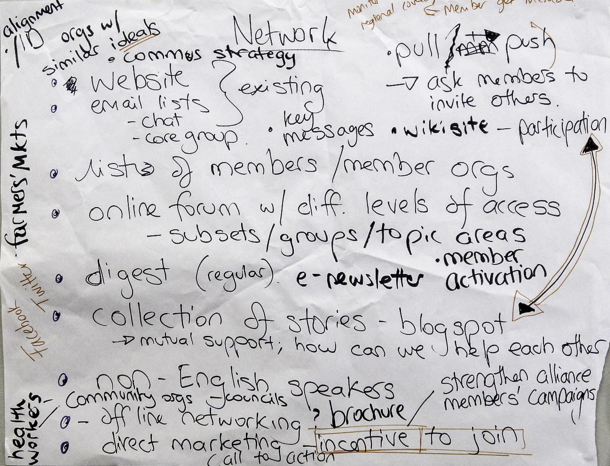 alignment
· ID orgs w/
similar ideals
· common strategy
Network
regional
member get
· pull / push
→ ask members to
invite others.
website
email lists
- chat
- core group.
existing
· key
messages
· wikisite - participation
lists of members / member orgs
online forum w/ diff. levels of access
- subsets/groups/topic areas
digest (regular). e-newsletter
· member
activation
collection of stories - blogspot
→ mutual support; how can we help each other
non-English speakers
- community orgs councils
- offline networking
? brochure
strengthen alliance
members' campaigns
direct marketing - incentive to join
(call to action
· farmers' mkts
Facebook
Twitter
health
workers